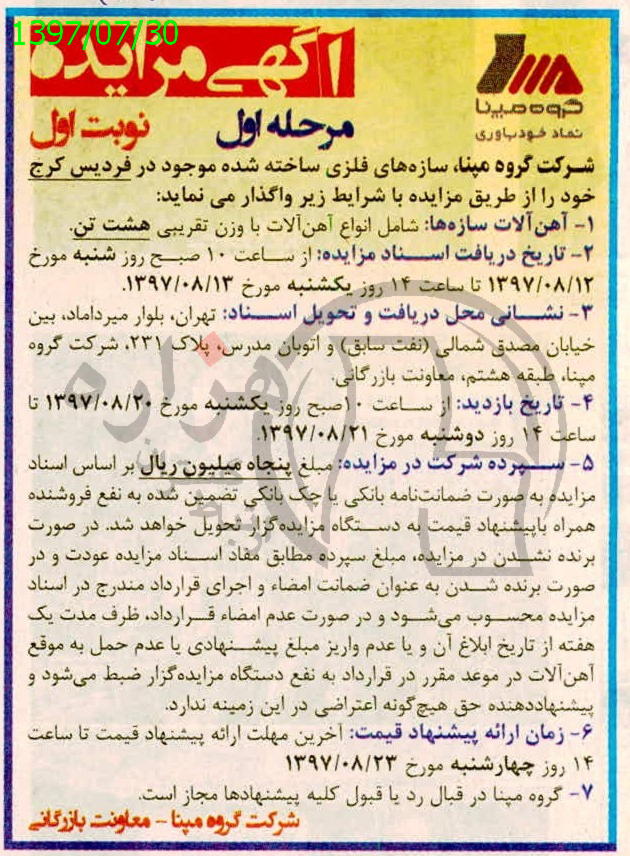 1397/07/30
آگهی مزایده
گروه مپنا
نماد خودباوری
مرحله اول نوبت اول
شرکت گروه مپنا، سازه‌های فلزی ساخته شده موجود در فردیس کرج
خود را از طریق مزایده با شرایط زیر واگذار می نماید:
۱- آهن‌آلات سازه‌ها: شامل انواع آهن‌آلات با وزن تقریبی هشت تن.
۲- تاریخ دریافت اسناد مزایده: از ساعت ۱۰ صبح روز شنبه مورخ
۱۳۹۷/۰۸/۱۲ تا ساعت ۱۴ روز یکشنبه مورخ ۱۳۹۷/۰۸/۱۳.
۳- نشانی محل دریافت و تحویل اسناد: تهران، بلوار میرداماد، بین
خیابان مصدق شمالی (نفت سابق) و اتوبان مدرس، پلاک ۲۳۱، شرکت گروه
مپنا، طبقه هشتم، معاونت بازرگانی.
۴- تاریخ بازدید: از ساعت ۱۰صبح روز یکشنبه مورخ ۱۳۹۷/۰۸/۲۰ تا
ساعت ۱۴ روز دوشنبه مورخ ۱۳۹۷/۰۸/۲۱.
۵- سپرده شرکت در مزایده: مبلغ پنجاه میلیون ریال بر اساس اسناد
مزایده به صورت ضمانت‌نامه بانکی یا چک بانکی تضمین شده به نفع فروشنده
همراه باپیشنهاد قیمت به دستگاه مزایده‌گزار تحویل خواهد شد. در صورت
برنده نشدن در مزایده، مبلغ سپرده مطابق مفاد اسناد مزایده عودت و در
صورت برنده شدن به عنوان ضمانت امضاء و اجرای قرارداد مندرج در اسناد
مزایده محسوب می‌شود و در صورت عدم امضاء قرارداد، ظرف مدت یک
هفته از تاریخ ابلاغ آن و یا عدم واریز مبلغ پیشنهادی یا عدم حمل به موقع
آهن‌آلات در موعد مقرر در قرارداد به نفع دستگاه مزایده‌گزار ضبط می‌شود و
پیشنهاددهنده حق هیچ‌گونه اعتراضی در این زمینه ندارد.
۶- زمان ارائه پیشنهاد قیمت: آخرین مهلت ارائه پیشنهاد قیمت تا ساعت
۱۴ روز چهارشنبه مورخ ۱۳۹۷/۰۸/۲۳
۷- گروه مپنا در قبال رد یا قبول کلیه پیشنهادها مجاز است.
شرکت گروه مپنا - معاونت بازرگانی
هزاره